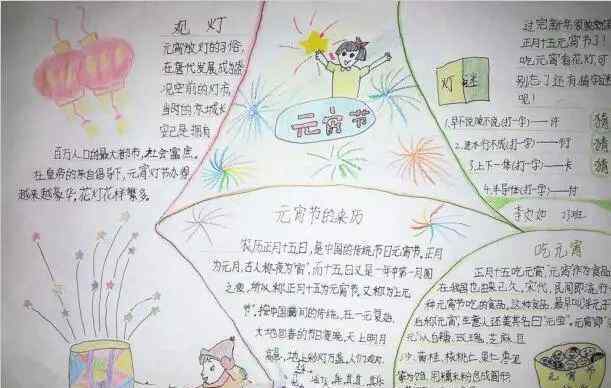 观 灯
元宵放灯的习俗,
在唐代发展成盛
况空前的灯市,
当时的京城长
安已是拥有
百万人口的最大都市,社会富庶。
在皇帝的亲自倡导下,元宵灯节办得
越来越豪华,花灯花样繁多。
元宵节
灯谜
正月十五元宵节了!
吃元宵看花灯可
别忘了还有猜字谜
呢!
1.早不说晚不说(打一字)——许
(打一字)——
3.上下一体(打一字)——卡
4.半导体(打一字)——付
猜
猜
元宵节的来历
农历正月十五日,是中国的传统节日元宵节。正月
为元月,古人称夜为"宵",而十五日又是一年中第一个月圆
之夜,所以称正月十五为元宵节。又称为上元
节",按中国民间的传统,在一元复始,
大地回春的节日夜晚,天上明月
地上彩灯万盏,人们观灯
吃元宵
正月十五吃元宵,元宵作为食品,
在我国也由来已久。宋代,民间即流行
种元宵节吃的食品。这种食品,最早叫
后称元宵,生意人还美其名曰"元宝"。元宵即
以白糖、玫瑰、芝麻、豆
沙、黄桂、核桃仁、果仁、枣泥
用糯米粉包成圆形
元宵节